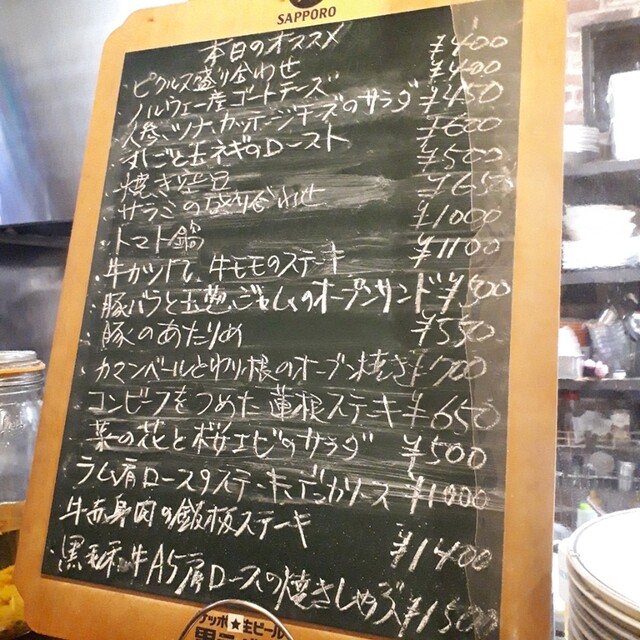 SAPPORO
本日のオススメ
・ピクルス盛り合わせ ¥400
・ノルウェー産ゴートチーズ ¥400
・人参、ツナ、カッテージチーズのサラダ ¥450
と玉ネギのロースト ¥600
・焼き空豆 ¥500
・サラミの盛り合わせ ¥650
・トマト鍋 ¥1000
・牛カツレツ、牛モモのステーキ ¥1100
・豚バラと玉葱のオープンサンド
・豚のあたりめ ¥550
・カマンベールと のオーブン焼き ¥700
・コンビーフをつめた蓮根ステーキ ¥650
・菜の花と桜エビのサラダ ¥500
・ラム肩ロースのステーキ、デニカソース
・牛赤身肉の鉄板ステーキ ¥1400
・黒毛和牛A5肩ロースの焼きしゃぶ
サッポロ★生ビール
黒ラベル